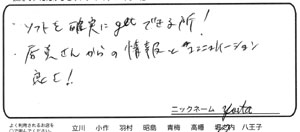 ・ソフトを確実にgetできる所!
・店員さんからの情報とコミュニケーション
良し!
ニックネーム yota
よく利用されるお店を
○で囲んでください。
立川 小作 羽村 昭島 青梅 高幡 堀之内 八王子